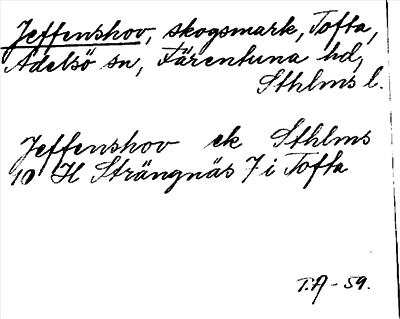 Jeffenshov, skogsmark, Tofta,
Adelsö sn, Färentuna hd,
Sthlms l.
Jeffenshov ek Sthlms
10 H Strängnäs 7 i Tofta
T.A-59.